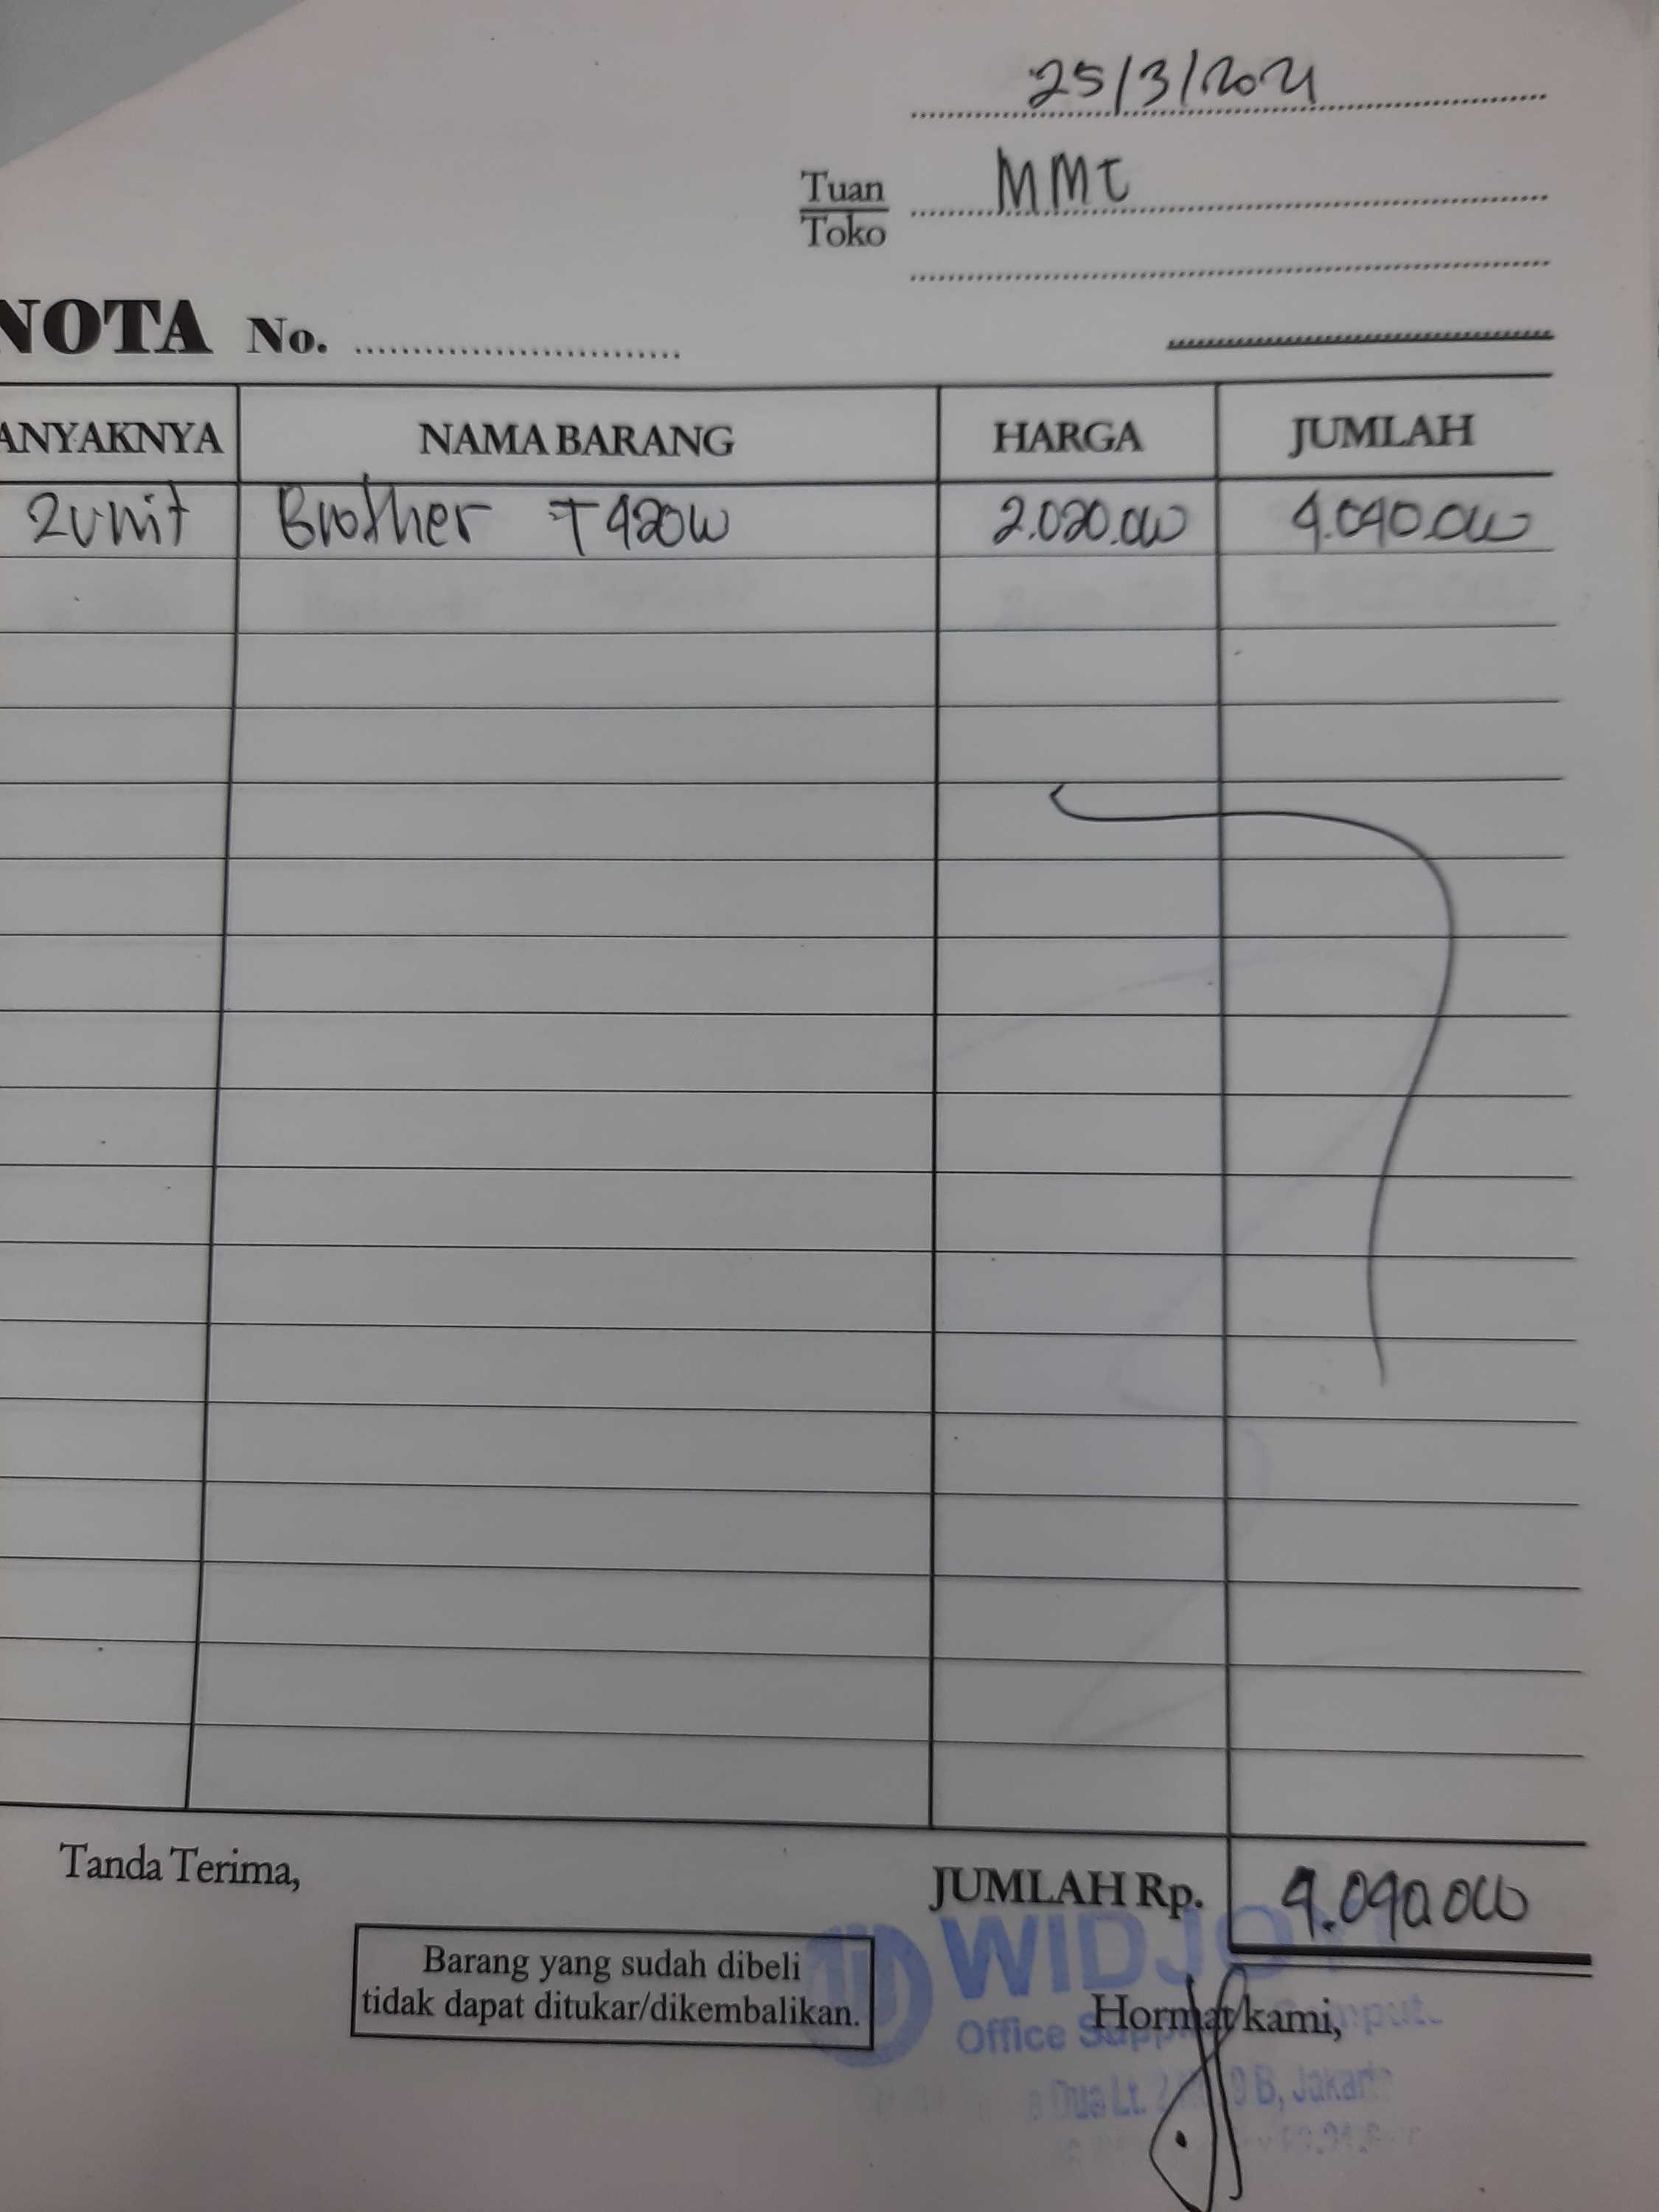 25/3/2021
Tuan
Toko
MMT
NOTA No.
ANYAKNYA NAMA BARANG HARGA JUMLAH
2 unit Brother T420W 2.020.000 4.040.000
Tanda Terima,
JUMLAH Rp. 4.040.000
Barang yang sudah dibeli
tidak dapat ditukar/dikembalikan.
WIDJO
Hormat kami,
Office
Dua Lt. B, Jakar